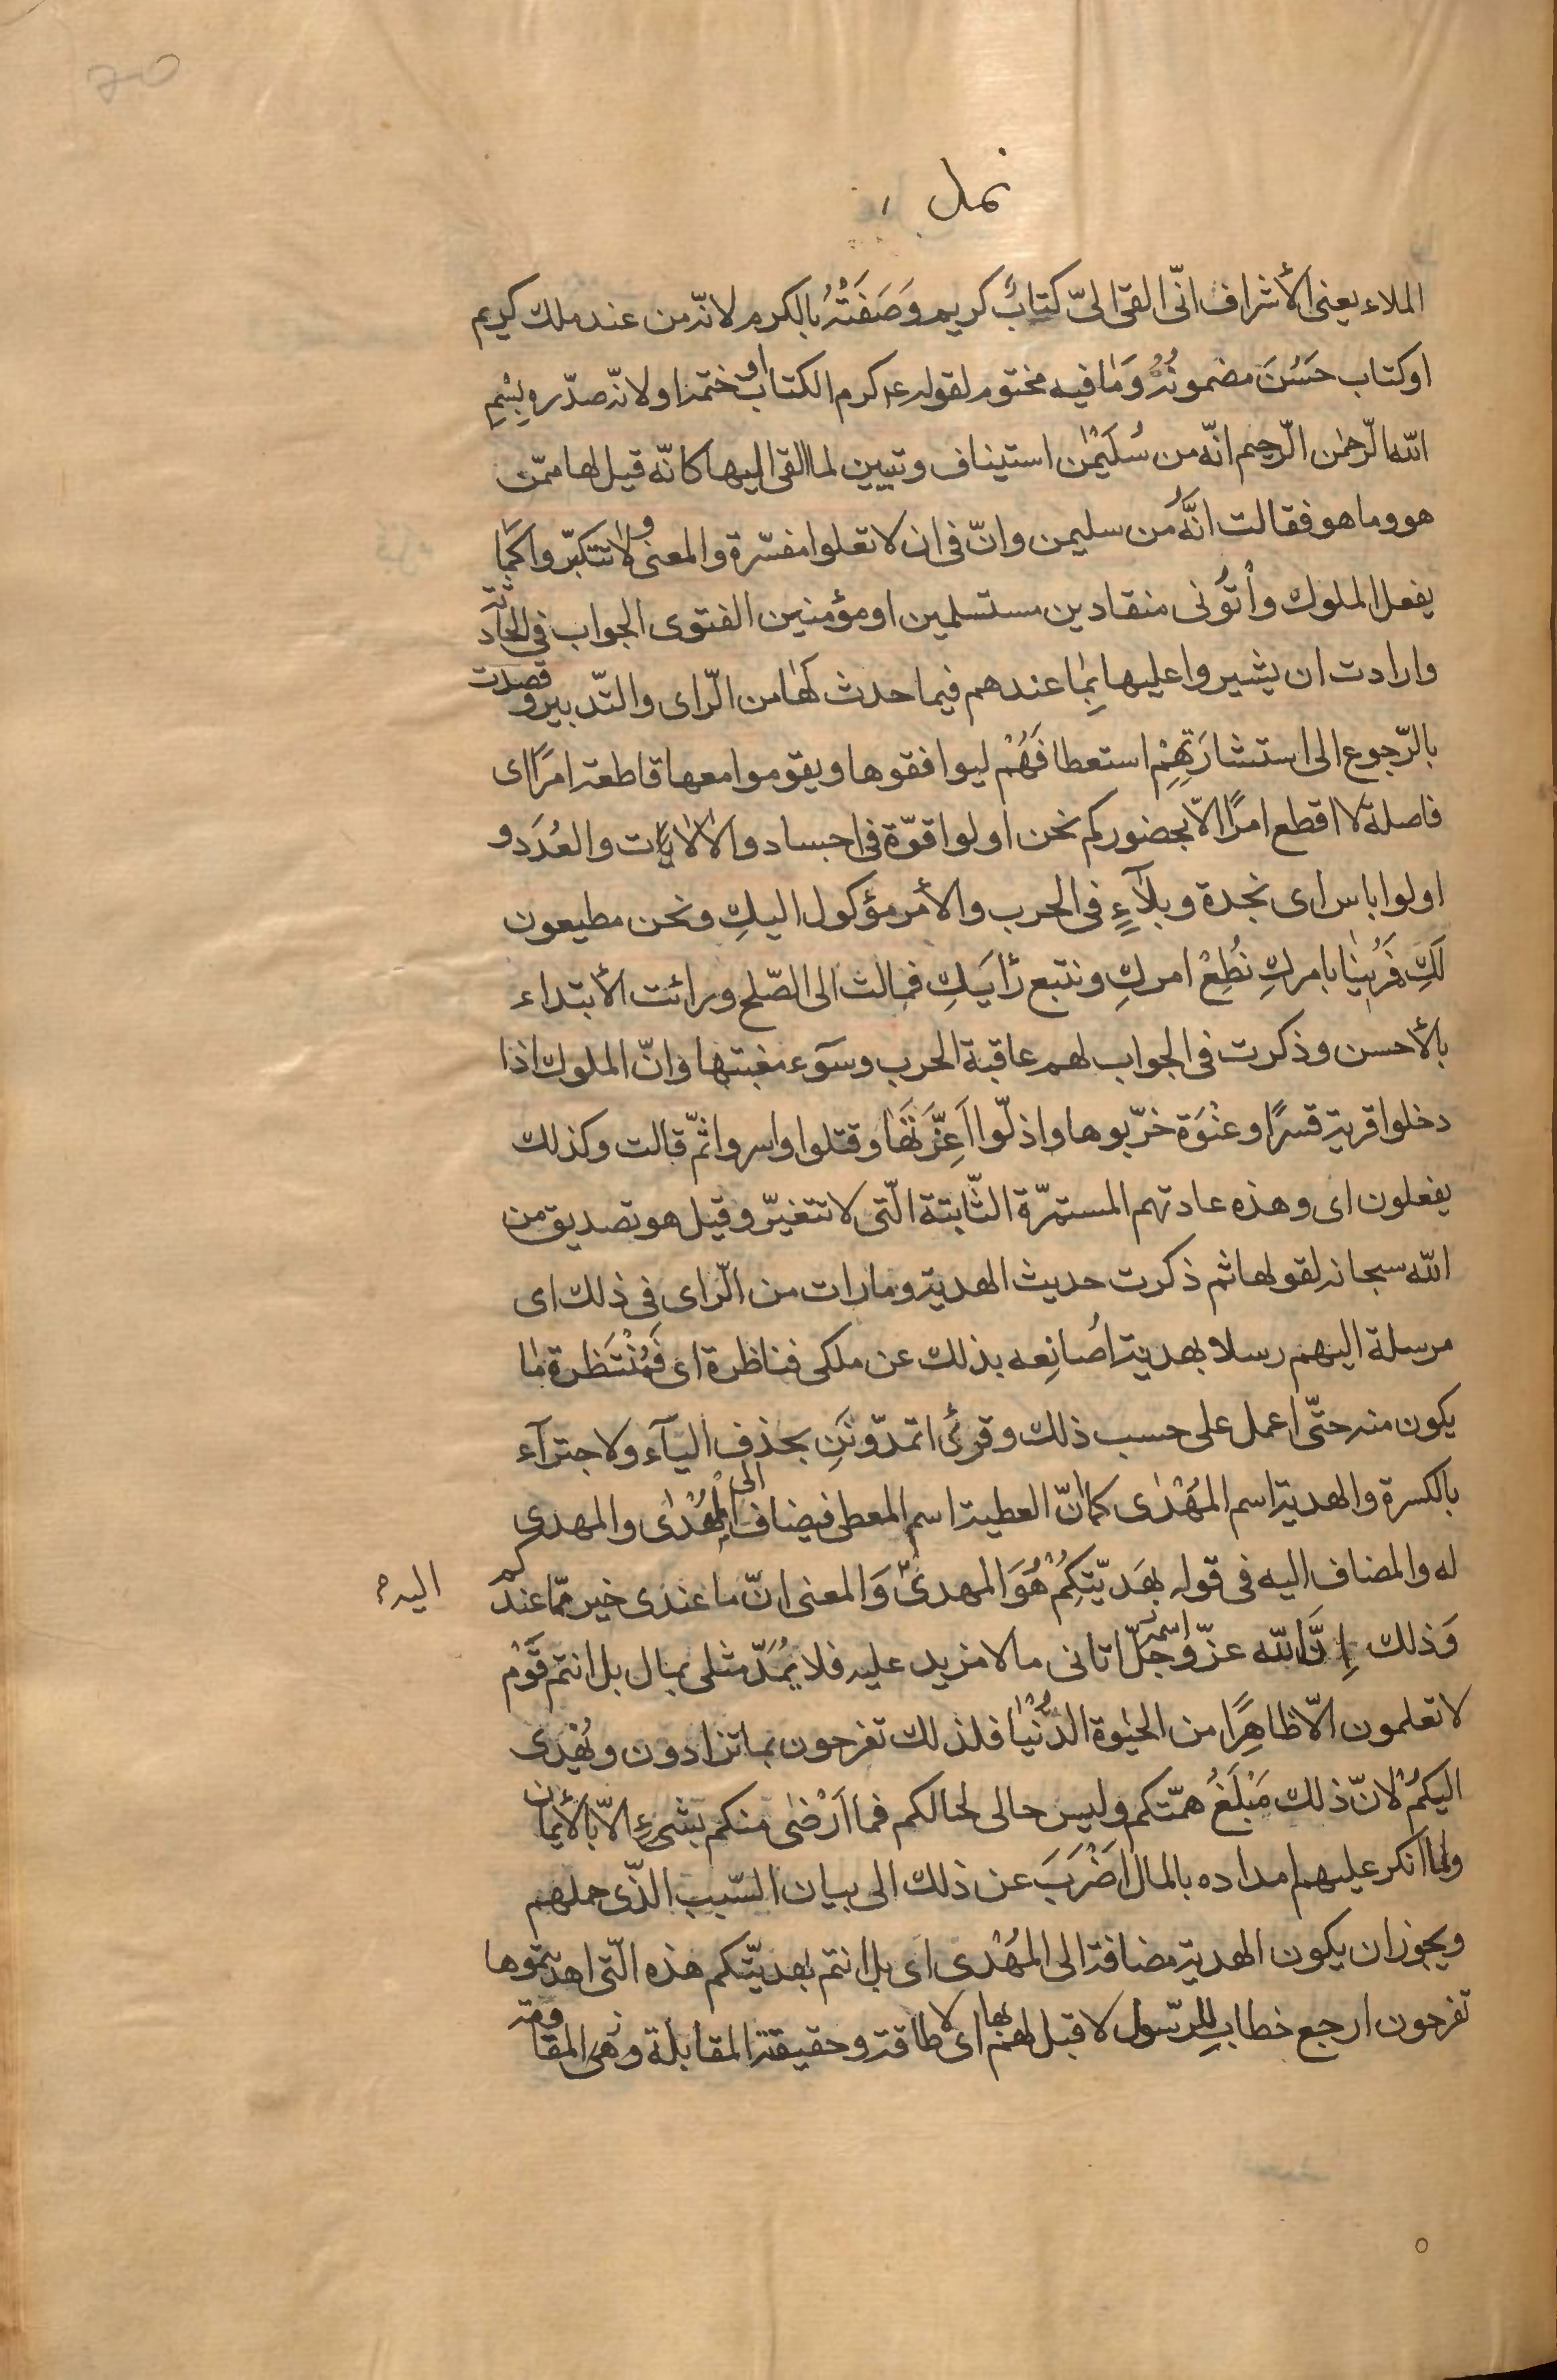 نمل
الملاء يعنى الأشراف انّى القى الىّ كتابٌ كريم وَصَفَتْهُ بالكرم لانّه من عند ملك كريم
او كتاب حَسُنَ مضمونُهُ وَمٰا فيه مختوم لقوله ع كرم الكتاب ختمه او لانّه صدّره بِبِسْمِ
اللّه الرّحمٰن الرّحيم انّه من سُلَيْمٰن استيناف وتبيين لما القى اليها كانّه قيل لها ممّن
هو وما هو فقالت انَّه من سليمن وانّ فى ان لا تعلوا مفسّرة والمعنى ولا تتكبّروا كَمٰا
يفعل الملوك وأْتوُنى منقادين مستسلمين او مؤمنين الفتوى الجواب فى الحادثة
وارادت ان يشيروا عليها بِمٰا عندهم فيما حدث لَهٰا من الرّاى والتّدبير وقصدت
بالرّجوع الى استشارَتِهِمْ استعطافَهُمْ ليوافقوها ويقوموا معها قاطعة امرًا اى
فاصلة لا اقطع امرًا الّا بحضوركم نحن اولوا قوّة فى اجساد والالايٰات والعُدَد و
اولوا باس اى نجدة وبلآءٍ فى الحرب والأمر مؤكول اليكِ ونحن مطيعون
لَكِ فَمُرينٰا بامركِ نُطِعْ امركِ ونتبع رَأيَكِ فمالت الى الصّلح ورائت الأبتداء
بالأحسن وذكرت فى الجواب لهم عاقبة الحرب وسوٓء مغبتها وانّ الملوك اذا
دخلوا قرية قسرًا وعنْوَة خرّبوها واذلّوا اَعِزَّتَهٰا وقتلوا واسروا ثمّ قالت وكذلك
يفعلون اى وهذه عادتهم المستمرّة الثّابتة الّتى لا تتغيّر وقيل هو تصديق من
اللّه سبحانه لقولها ثم ذكرت حديث الهدية وما رات من الرّاى فى ذلك اى
مرسلة اليهم رسلا بهدية اُصٰانِعه بذلك عن ملكى فناظرة اى فَمُنْتَظرة مٰا
يكون منه حتّى اعمل على حسب ذلك وقرئ اتمدّونَنِ بحذف اليآء ولاجتزآء
بالكسرة والهدية اسم المهْدٰى كما انّ العطية اسم المعطى فيضاف الى المُهْدٰى والمهدى
له والمضاف اليه فى قوله بهَديّتِكُمْ هُوَ المهدىّ وَالمعنى انّ ما عندى خير ممّا عندكم
اليه
وَذلك إِنَّ اللّه عزّ اسمه وجلّ اتانى ما لا مزيد عليه فلا يُمَدّ مثلى بمال بل انتم قَوْم
لا تعلمون الّا ظاهِرًا من الحيٰوة الدُّنْيٰا فلذلك تفرحون بما تزادون ويُهْدٰى
اليكُمْ لانّ ذلك مَبْلَغُ همّتكم وليس حالى لحالكم فما اَرْضٰى منكم بشىءٍ الّا بالأيمان
ولما انكر عليهم امداده بالمال اضْرَبَ عن ذلك الى بيان السّبب الذّى حملهم
ويجوز ان يكون الهدية مضافة الى المهْدى اى بل انتم بهديّتكم هذه الّتى اهديتموها
تفرحون ارجع خطابٌ للرّسول لا قبل لهم بها اى لا طاقة وحقيقة المقابلة وهى المقاومة